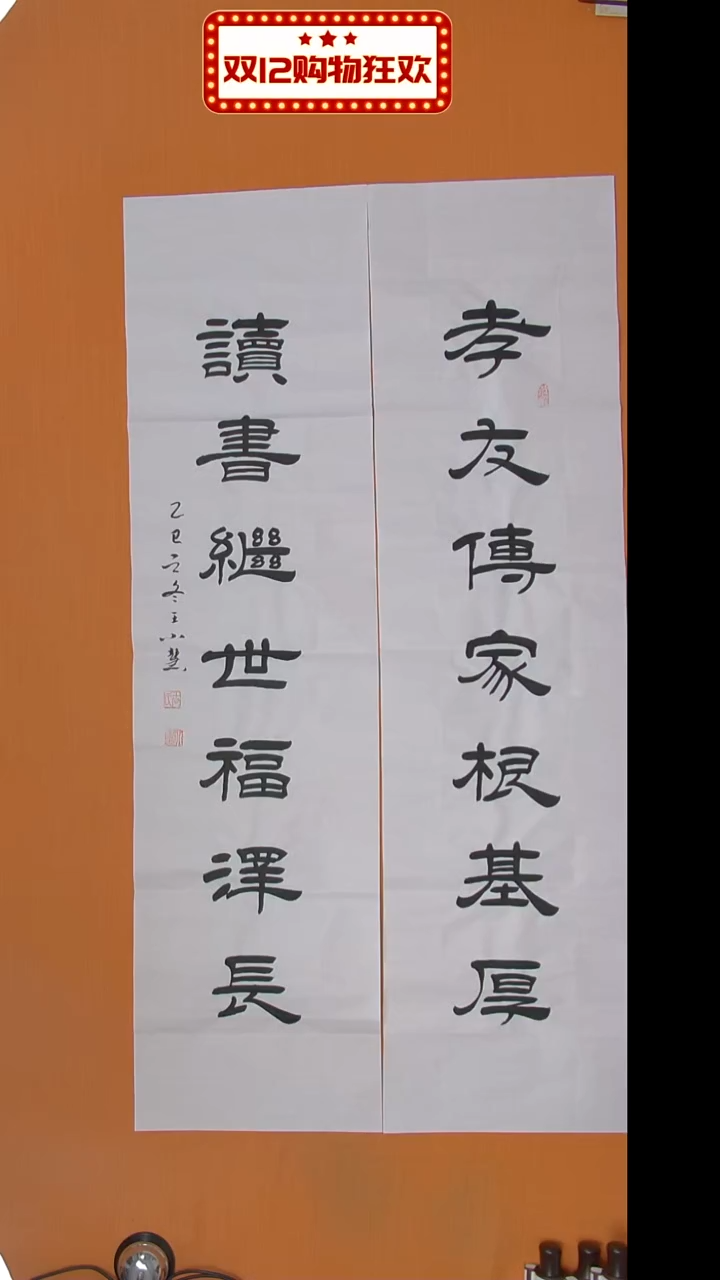 双12购物狂欢
孝友傳家根基厚
讀書繼世福澤長
乙巳之冬王小慧